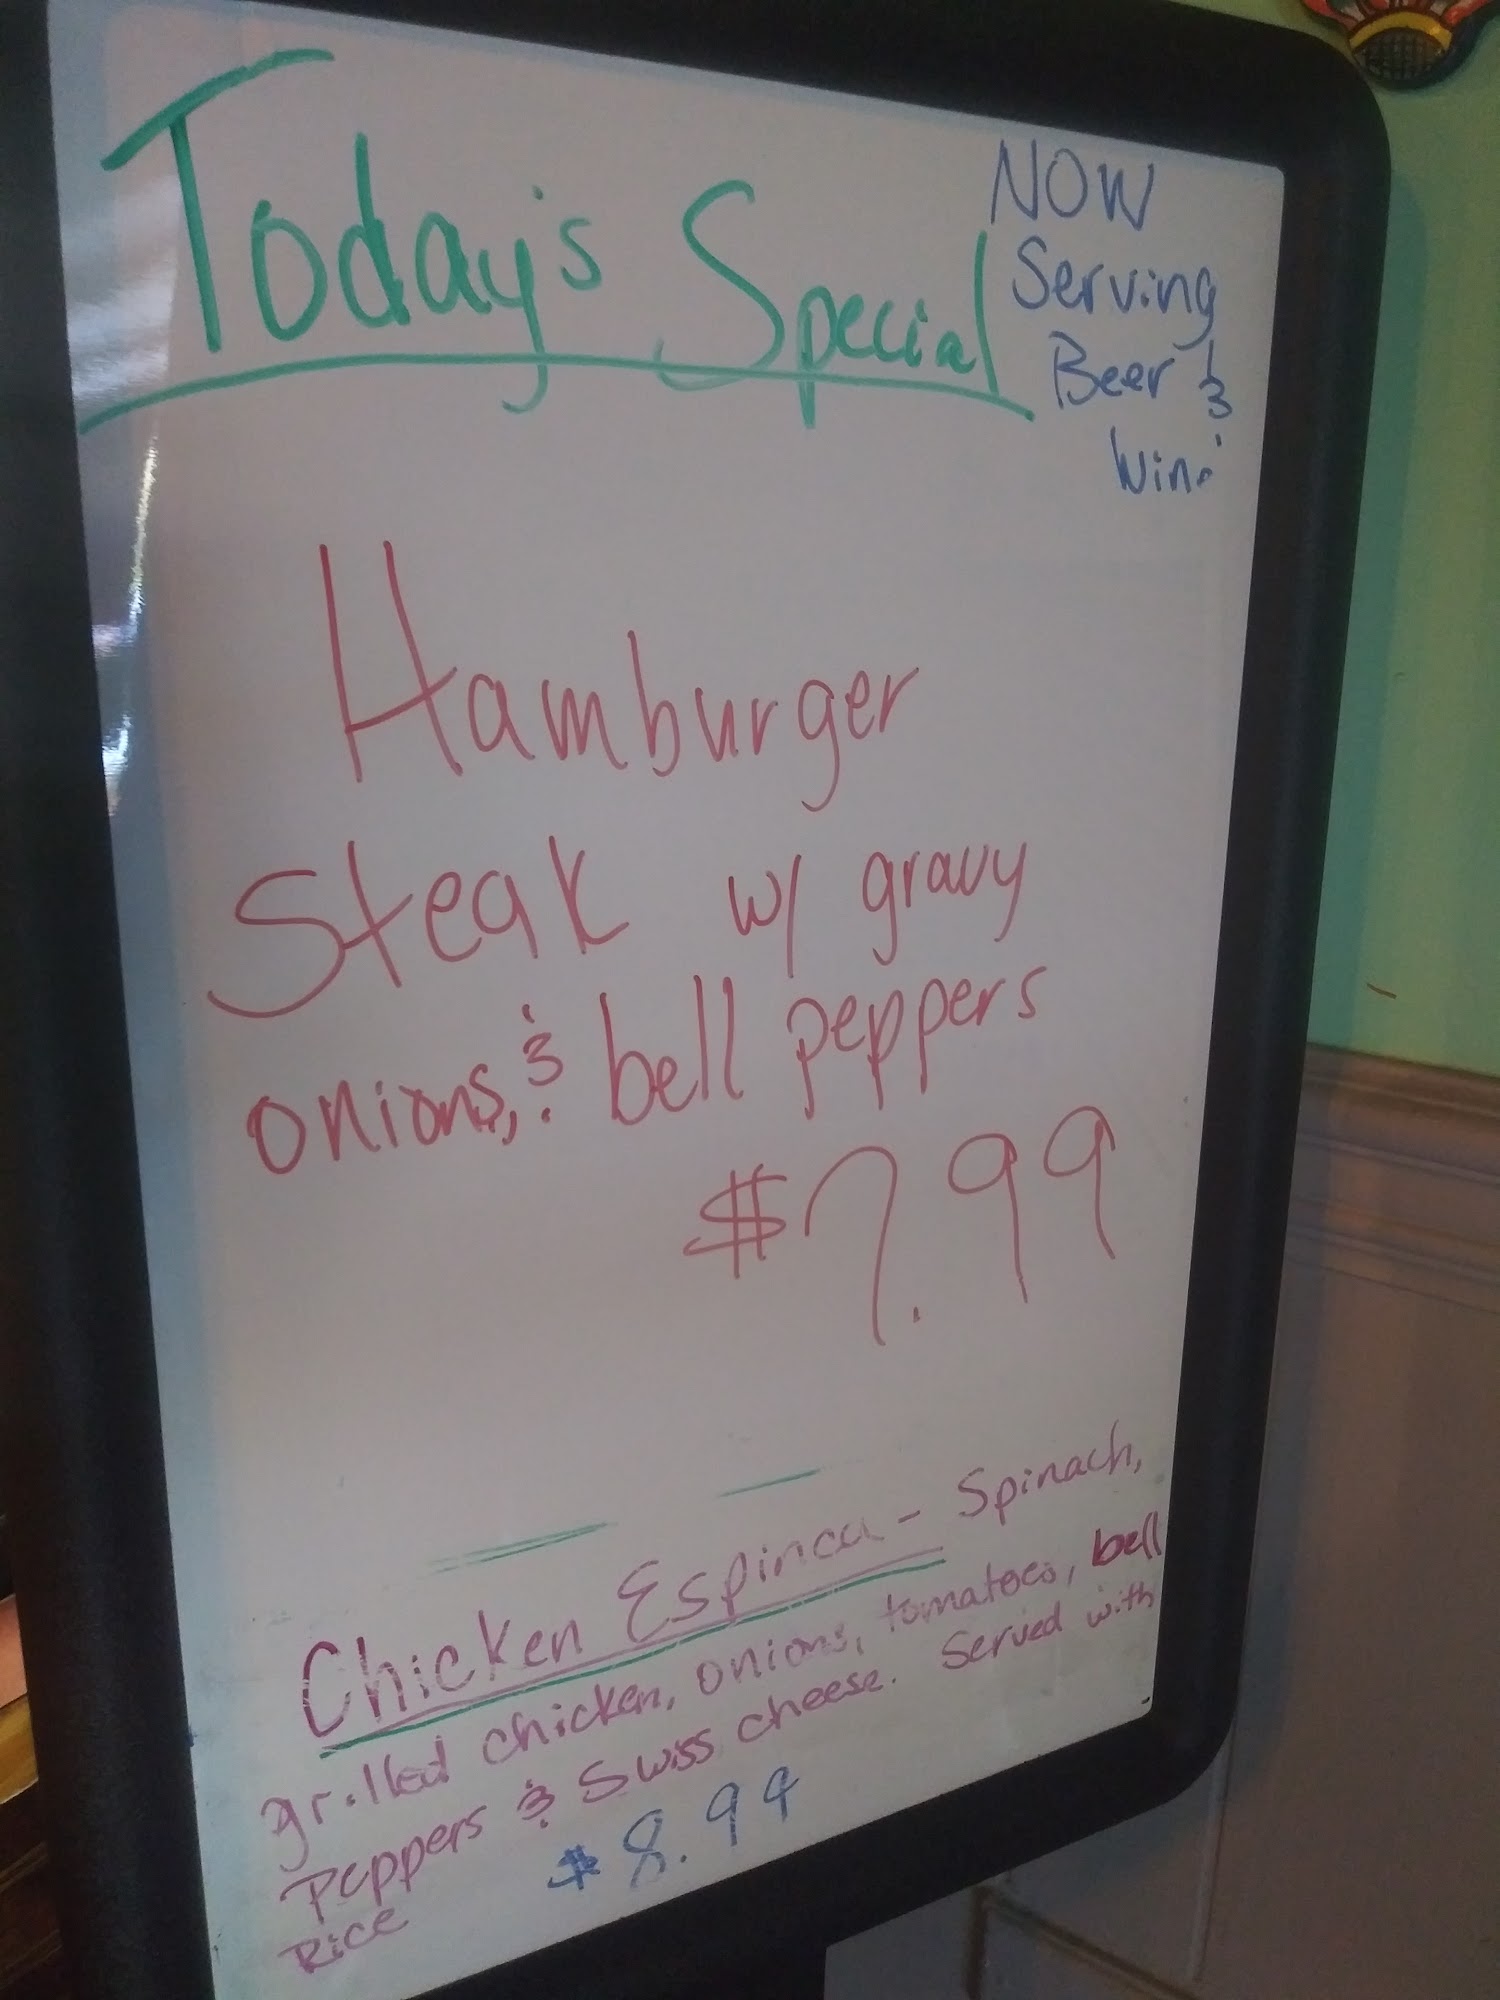 Today's Special
NOW
Serving
Beer &
Wine
Hamburger
Steak w/ gravy
onions, & bell peppers
$7.99
Chicken Espinaca - Spinach,
grilled chicken, onions, tomatoes, bell
Peppers & Swiss cheese. Served with
Rice
$8.99